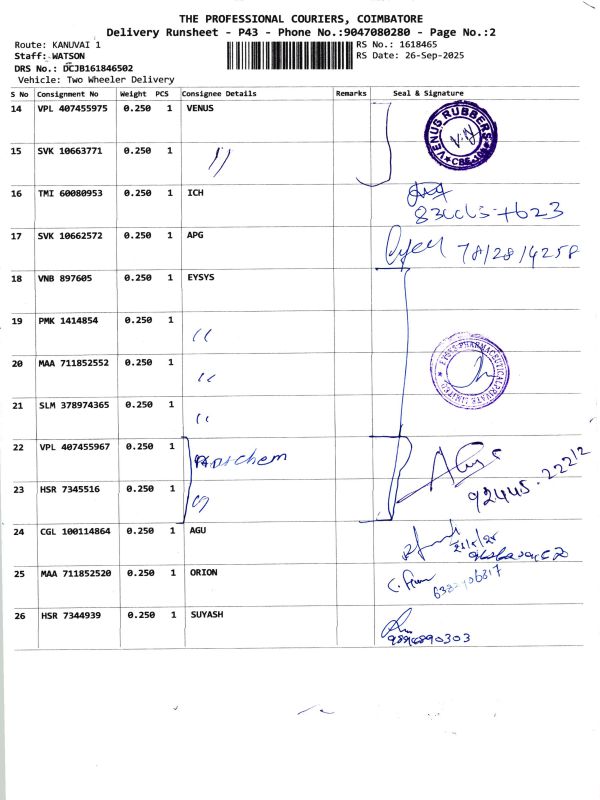 THE PROFESSIONAL COURIERS, COIMBATORE
Delivery Runsheet - P43 - Phone No.:9047080280 - Page No.:2
Route: KANUVAI 1 RS No.: 1618465
Staff: WATSON RS Date: 26-Sep-2025
DRS No.: DCJB161846502
Vehicle: Two Wheeler Delivery
S No Consignment No Weight PCS Consignee Details Remarks Seal & Signature
14 VPL 407455975 0.250 1 VENUS VENUS RUBBERS
15 SVK 10663771 0.250 1 〃
16 TMI 60080953 0.250 1 ICH
17 SVK 10662572 0.250 1 APG
18 VNB 897605 0.250 1 EYSYS
19 PMK 1414854 0.250 1 〃
20 MAA 711852552 0.250 1 〃 EYSYS PHARMACEUTICAL PRIVATE LIMITED
21 SLM 378974365 0.250 1 〃
22 VPL 407455967 0.250 1
23 HSR 7345516 0.250 1 〃 92445.22212
24 CGL 100114864 0.250 1 AGU
25 MAA 711852520 0.250 1 ORION
26 HSR 7344939 0.250 1 SUYASH